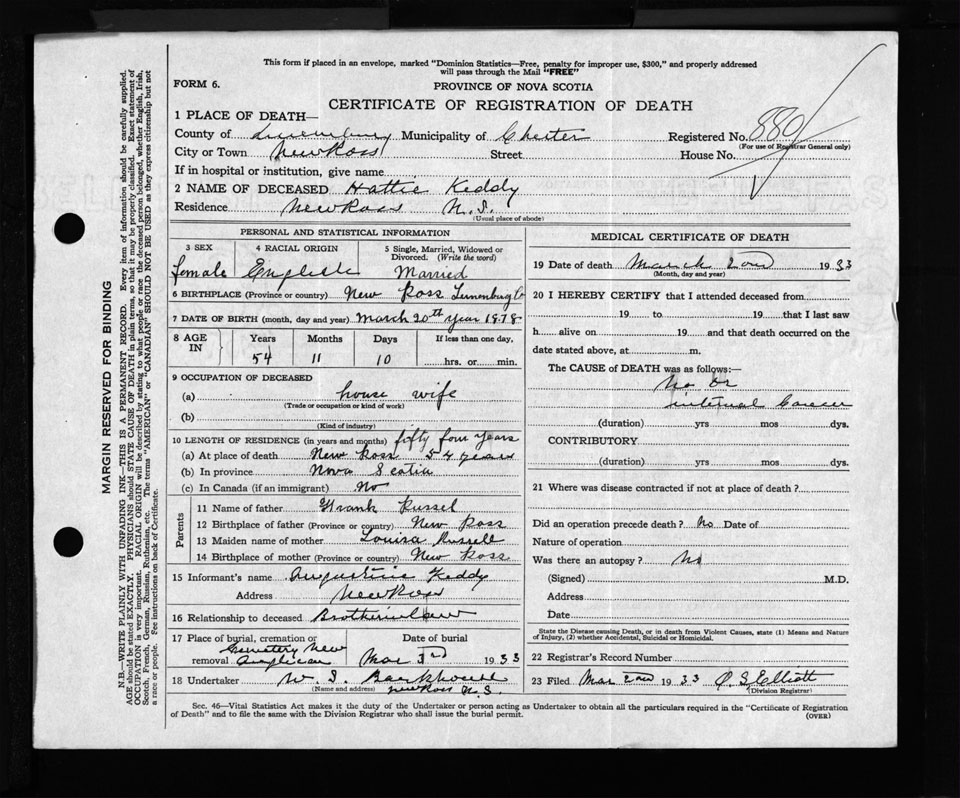 This form if placed in an envelope, marked "Dominion Statistics—Free, penalty for improper use, $300," and properly addressed
will pass through the Mail "FREE"
FORM 6.
PROVINCE OF NOVA SCOTIA
CERTIFICATE OF REGISTRATION OF DEATH
1 PLACE OF DEATH—
County of Lunenburg Municipality of Chester Registered No. 880
(For use of Registrar General only)
City or Town New Ross Street House No.
If in hospital or institution, give name
2 NAME OF DECEASED Hattie Keddy
Residence New Ross N.S.
(Usual place of abode)
PERSONAL AND STATISTICAL INFORMATION
3 SEX 4 RACIAL ORIGIN 5 Single, Married, Widowed or
Divorced. (Write the word)
female English Married
6 BIRTHPLACE (Province or country) New Ross Lunenburg Co
7 DATE OF BIRTH (month, day and year) March 20th Year 1878
8 AGE IN Years Months Days If less than one day,
54 11 10 hrs. or min.
9 OCCUPATION OF DECEASED
(a) house wife
(Trade or occupation or kind of work)
(b)
(Kind of industry)
10 LENGTH OF RESIDENCE (in years and months) fifty four years
(a) At place of death New Ross 54 years
(b) In province Nova Scotia
(c) In Canada (if an immigrant) No
Parents
11 Name of father Frank Russel
12 Birthplace of father (Province or country) New Ross
13 Maiden name of mother Louisa Russell
14 Birthplace of mother (Province or country) New Ross
15 Informant's name Augustus Keddy
Address New Ross
16 Relationship to deceased Brotherinlaw
17 Place of burial, cremation or removal Date of burial
Cemetery New
Anglican Mar 3rd 1933
18 Undertaker W. I. Barkhouse
(Name and address) New Ross N.S.
MEDICAL CERTIFICATE OF DEATH
19 Date of death March 2nd 1933
(Month, day and year)
20 I HEREBY CERTIFY that I attended deceased from
19 to 19 that I last saw
h alive on 19 and that death occurred on the
date stated above, at m.
The CAUSE of DEATH was as follows:—
No Dr
internal Cancer
(duration) yrs mos dys.
CONTRIBUTORY
(duration) yrs mos dys.
21 Where was disease contracted if not at place of death?
Did an operation precede death? No Date of
Nature of operation
Was there an autopsy? No
(Signed) M.D.
Address
Date
State the Disease causing Death, or in death from Violent Causes, state (1) Means and Nature
of Injury, (2) whether Accidental, Suicidal or Homicidal.
22 Registrar's Record Number
23 Filed Mar 2nd 1933 Elliott
(Division Registrar)
Sec. 46—Vital Statistics Act makes it the duty of the Undertaker or person acting as Undertaker to obtain all the particulars required in the "Certificate of Registration
of Death" and to file the same with the Division Registrar who shall issue the burial permit.
(OVER)
MARGIN RESERVED FOR BINDING
N.B.—WRITE PLAINLY WITH UNFADING INK—THIS IS A PERMANENT RECORD. Every item of information should be carefully supplied.
AGE should be stated EXACTLY. PHYSICIANS should STATE CAUSE OF DEATH in plain terms, so that it may be properly classified. Exact statement of
OCCUPATION is very important. RACIAL ORIGIN will be described by stating to what people or race the deceased person belonged, whether English, Irish,
Scotch, French, German, Russian, Ruthenian, etc. The terms "AMERICAN" or "CANADIAN" SHOULD NOT BE USED as they express citizenship but not
a race or people. See instructions on back of Certificate.